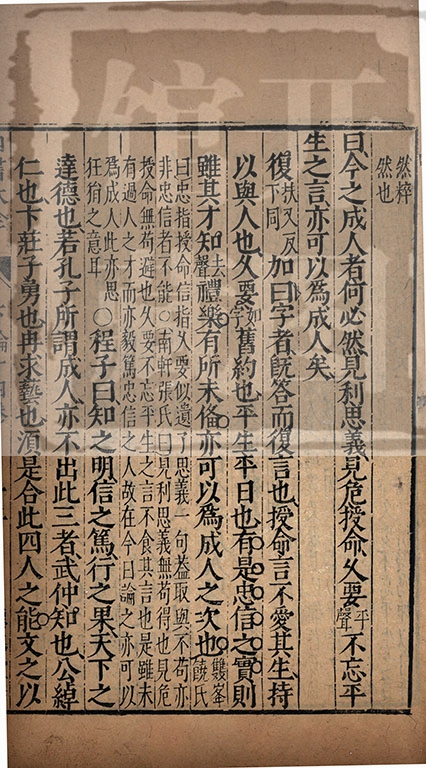 然粹
然也
曰今之成人者何必然見利思義見危授命久要平聲不忘平
生之言亦可以為成人矣
復扶又反下同加曰字者既答而復言也授命言不愛其生持
以與人也久要如字舊約也平生平日也有是忠信之實則
雖其才知去聲禮樂有所未備亦可以為成人之次也雙峯饒氏
曰忠指授命信指久要似遺了思義一句蓋取與不苟亦
非忠信者不能○南軒張氏曰見利思義無苟得也見危
授命無苟避也久要不忘平生之言不食其言也是雖未
有過人之才而亦毅篤忠信之人故在今日論之亦可以
為成人此亦思狂狷之意耳○程子曰知之明信之篤行之果天下之
達德也若孔子所謂成人亦不出此三者武仲知也公綽
仁也卞莊子勇也冉求藝也須是合此四人之能文之以